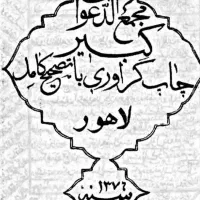 مجمع الدعوات
کبیر
چاپ کراوری با تصحیح کامل
لاهور
سنه ۱۳۷۶